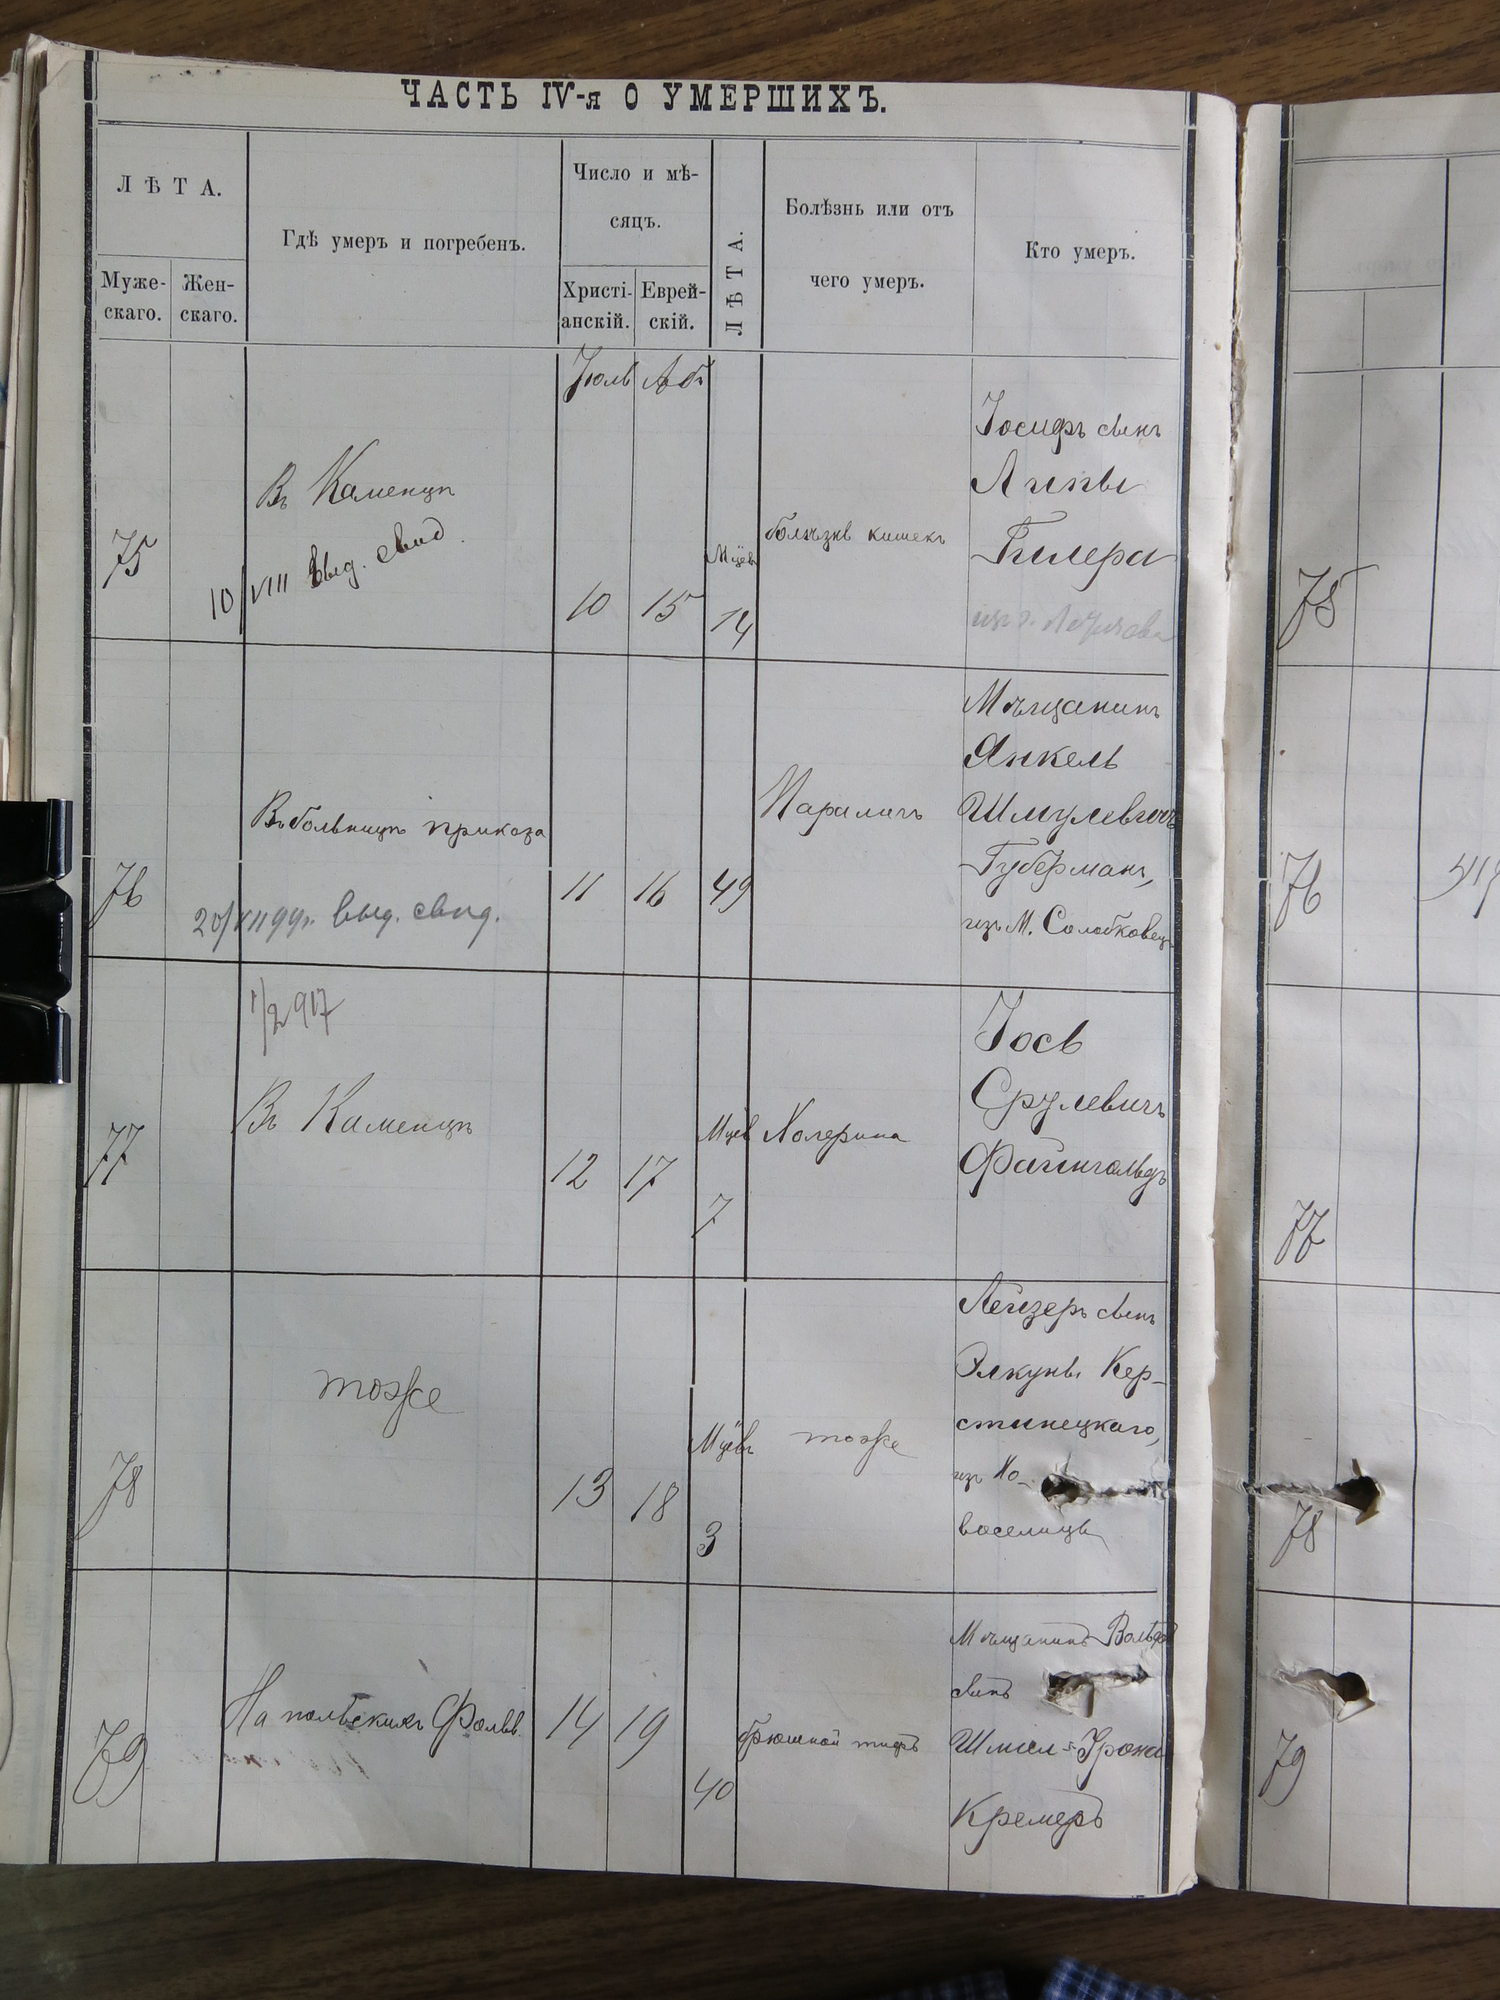 ЧАСТЬ IV-я О УМЕРШИХЪ.
ЛѢТА.
Муже-
скаго.
Жен-
скаго.
Гдѣ умеръ и погребенъ.
Число и мѣ-
сяцъ.
Христі-
анскій.
Еврей-
скій.
ЛѢТА.
Болѣзнь или отъ
чего умеръ.
Кто умеръ.
Іюль Абъ
75
Въ Каменцѣ
10/VIII выд. свид.
10
15
Мцѣв
14
болѣзнь кишекъ
Іосифъ сынъ
Липы
Гилера
75
76
Въ больницѣ приказа
20/XII 99г. выд. свид.
11
16
49
Параличъ
Мѣщанинъ
Янкель
Шмулевичъ
Губерманъ,
изъ М. Солобковецъ
76
77
1/2 917
Въ Каменцѣ
12
17
Мцѣв
7
Холерина
Іось
Срулевичъ
Файнгольдъ
77
78
тоже
13
18
Мцѣвъ
3
тоже
Лейзеръ сынъ
Элкуны Кер-
стинецкаго,
изъ Но-
воселицы
78
79
На польскихъ Фольв.
14
19
40
брюшной тифъ
Мѣщанинъ Вольфъ
сынъ
Шмил-Хрона
Кремеръ
79